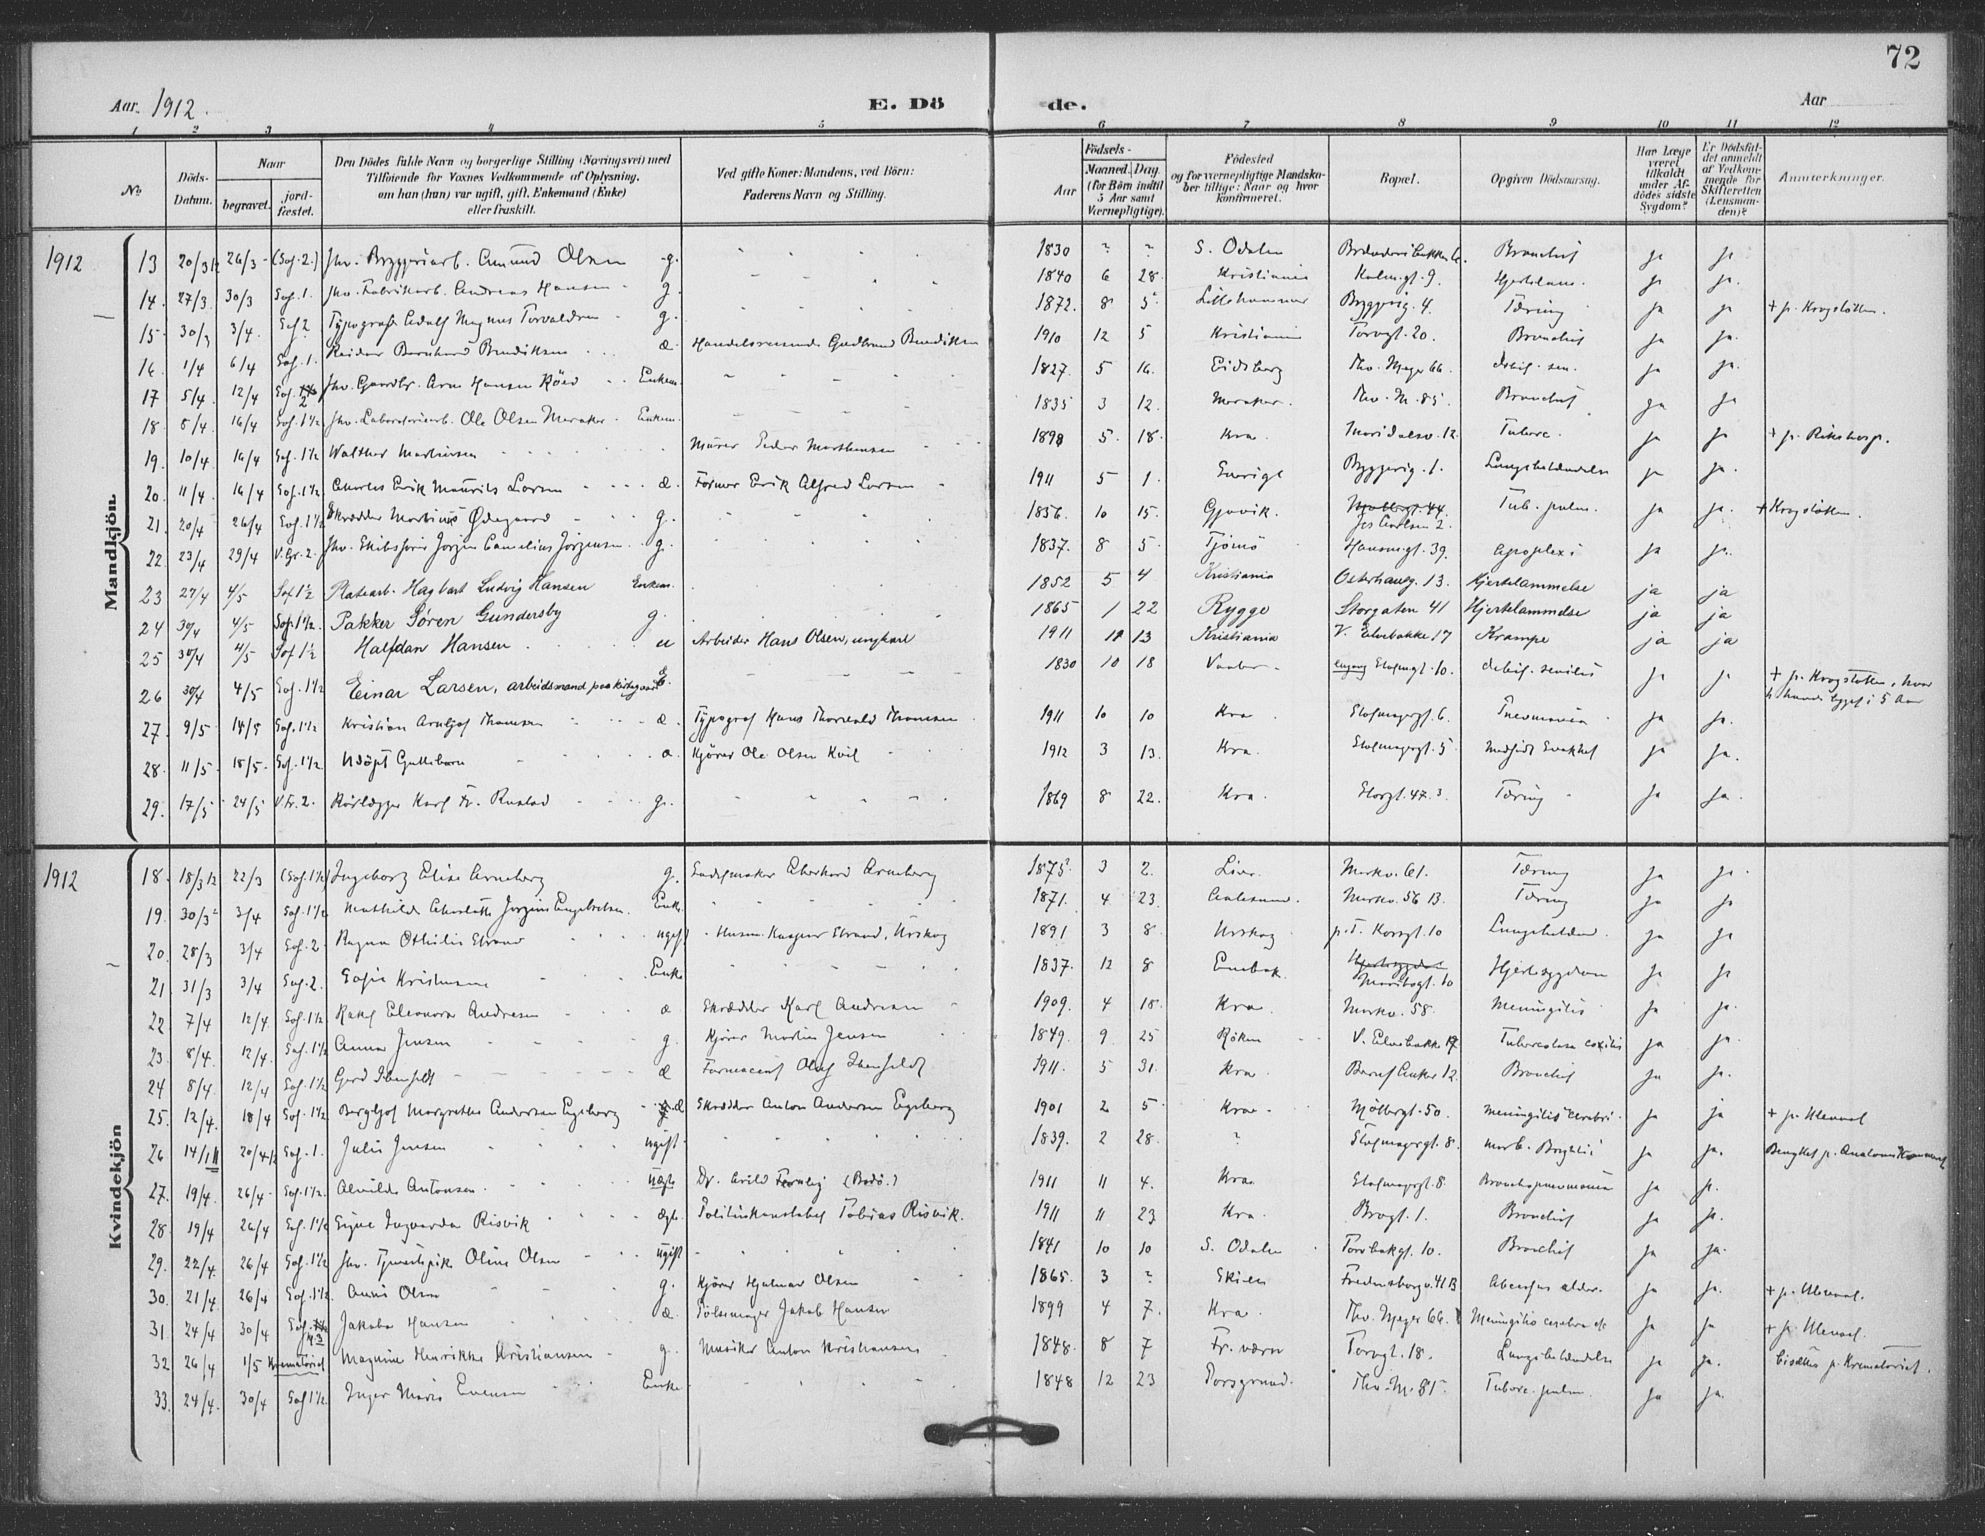 72
Aar 1912.
E. Dö
de.
Aar
1 2 3 4 5 6 7 8 9 10 11 12
No
Döds-Datum.
Naar
begravet.
jord-fæstet.
Den Dödes fulde Navn og borgerlige Stilling (Næringsvei) med
Tilföiende for Voxnes Vedkommende af Oplysning,
om han (hun) var ugift, gift, Enkemand (Enke)
eller fraskilt.
Ved gifte Koner: Mandens, ved Börn:
Faderens Navn og Stilling.
Födsels-
Aar
Maaned. Dag.
(for Börn indtil 5 Aar samt Værnepligtige).
Födested
og for værnepligtige Mandskaber tillige: Naar og hvor konfirmeret.
Bopæl.
Opgiven Dödsaarsag.
Har Læge været tilkaldt under Afdödes sidste Sygdom?
Er Dödsfaldet anmeldt af Vedkommende for Skifteretten (Lensmanden)?
Anmerkninger.
1912
Mandkjön.
13 20/3 12 26/3 (Sof. 2.) fhv. Bryggeriarb. Amund Olsen g. 1830 ? ? S. Odalen Bronchit ja ja
14. 27/3 30/3 Sof. 1. fhv. Fabrikarb. Andreas Hansen g. 1840 6 28. Kristiania Holmgt. 9. ja ja.
15. 30/3 3/4 Sof. 2 Typograf Adolf Magnus Torvaldsen g. 1872. 8 5 Lillehammer Byggvig. 4. Tæring ja ja + p. Krogstøtten.
16. 1/4 6/4 Sof. 1. Reidar Bernhard Bendiksen æ. Handelsreisende Gudbrand Bendiksen 1910 12 5 Kristiania Torvgt. 20. Bronchit ja ja.
17 5/4 12/4 Sof. 2 fhv. Gaardbr. Arne Hansen Röed Enkem. 1827. 5 16. Eidsberg Thv. Meyer 66. debil. sen. ja ja.
18. 8/4. 16/4 Sof. 1 1/2 fhv. Laboratoriearb. Ole Olsen Meraker Enkem. 1835 3 12. Meraker. Thv. M. 85. Bronchit ja ja
19. 10/4 16/4 Sof. 1 1/2 Walther Marthinsen Murer Peder Marthinsen 1898 5. 18. Kra. Maridalsv. 12. Tuberc. ja ja + p. Rikshosp.
20. 11/4 16/4 Sof. 1 1/2 Charles Erik Maurits Larsen æ. Former Erik Alfred Larsen 1911 5 1. Sverige Byggerig. 1. Lungebetændelse ja ja.
21. 20/4 26/4 Sof. 1 1/2 Skrædder Martinus Ødegaard g. 1856. 10 15. Gjøvik. Tub. pulm. ja ja. + Krogstøtten.
22. 23/4 29/4 V. Gr. 2. fhv. Skibsfører Jørgen Cornelius Jörgensen g. 1837. 8 5. Tjømö Hausmsgt. 39. Apoplexi ja ja.
23 27/4 4/5 Sof 1 1/2 Platearb. Hagbart Ludvig Hansen Enkem. 1852 5 4 Kristiania Osterhausg. 13. Hjertelammelse ja ja
24 30/4 4/5 Sof. 1 1/2 Pakker Sören Gundersby g. 1865 1 22 Rygge Storgaten 41 Hjertelammelse ja ja
25 30/4 4/5 Sof 1 1/2 Halfdan Hansen u Arbeider Hans Olsen, ungkarl 1911 11 13 Kristiania V. Elvebakke 17 Krampe ja ja
26 30/4 4/5 Sof. 1 1/2 Einar Larsen, arbeidsmand paa kirkegaard E. 1830 10 18 Vaaler Stolmagt. 10. debil. senilis ja ja + p. Krogstøtten, hvor h. havde ligget i 5 Aar
27. 9/5 14/5 Sof. 1 1/2 Kristian Arnljot Thomsen æ. Typograf Hans Thorvald Thomsen 1911 10 10 Kra. Stolmagergt. 6. Pneumonia ja ja.
28. 11/5 15/5 Sof. 1 1/2 Udöpt Guttebarn æ. Kjörer Ole Olsen Kvil 1912 3 13. Kra. Stolmagergt. 5 Medfødt Svakhet ja ja.
29. 17/5 24/5 V. Fr. 2. Rörlægger Karl Fr. Rustad g. 1869 8 22. Kra. Storgt. 47. 3 Tæring ja ja.
1912
Kvindekjön
18. 18/3 12 22/3 (Sof. 1 1/2) Ingeborg Elise Arneberg g. Sadelmaker Eberhard Arneberg 1875. 3 2. Lier. Markv. 61. Tæring ja ja.
19. 30/3 3/4 Sof. 1 1/2 Mathilde Charlotte Jorgine Engebretsen. Enke 1871. 4 23. Aalesund. Markv. 56 B. Tæring ja ja
20. 28/3 3/4 Sof. 2. Ragna Othilie Strand ugift Husm. Kasper Strand, Urskog 1891 3 8. Urskog p. T. Korsgt. 10 Lungebetænd. ja ja
21 31/3 3/4 Sof. 2. Sofie Kristiansen Enke 1837. 12 8 Enebak. Maribogt. 10 Hjertesygdom ja ja
22. 7/4 12/4. Sof. 1 1/2 Rakel Eleonora Andresen æ Skrædder Karl Andresen 1909. 4 18. Kra. Markv. 58. Meningitis ja ja.
23. 8/4. 12/4. Sof. 1 1/2 Anna Jensen g. Kjörer Martin Jensen 1849. 9 25 Röken V. Elvebakke 17 Tuberculosa coxitis ja ja.
24 8/4. 12/4 Sof. 1 1/2 Gerd Ihenfeldt æ Farmaceut Olaf Ihenfeldt 1911. 5 31. Kra. Bernt Anker 12. Bronchit ja ja.
25. 12/4. 18/4 Sof. 1 1/2 Bergljot Margrethe Andersen Egeberg æ Skrædder Anton Andersen Egeberg 1901 2 5. Kra. Möllergt. 50. Meningitis cerebri. ja ja + p. Ulleval
26 14/1 11 20/4 12 Sof. 1. Julie Jensen ugift. 1839. 2 28. ? Stolmagergt. 8. morb. Brightii ja ja.
27. 19/4. 26/4 Sof. 1 1/2. Alvilde Antonsen uægte (Bodö.) 1911 11 4. Kra. Stolmagergt. 8 Bronchopneumonia ja ja.
28. 19/4 26/4 Sof. 1 1/2 Signe Ingvarda Risvik ægte. Politikonstabel Tobias Risvik. 1911 11 23 Kra. Brogt. 1. Bronchit ja ja.
29. 22/4. 26/4 Sof. 1 1/2 fhv. Tjenestepike Oline Olsen ugift 1841 10 10 S. Odalen Torvbakgt. 10. Bronchit ja ja.
30. 21/4 26/4 Sof. 1 1/2. Anni Olsen g. Kjörer Hjalmar Olsen 1865. 3 ? Skien Fredensborgv. 41 B ja ja. + p. Ulleval.
31. 24/4 30/4 Jakoba Hansen æ. Pølsemager Jakob Hansen 1899 4 7. Kra. Thv. Meyer 66. Meningitis cerebro ja ja + p. Ulleval.
32 26/4 1/5 Krematoriet Magnine Henrikke Kristiansen g. Musiker Anton Kristiansen 1848. 8 7 Fr. værn Torvgt. 18. Lungebetændelse ja ja. bisættes p. Krematoriet.
33. 24/4. 30/4 Sof 1 1/2. Inger Marie Evensen Enke 1848 12 23 Porsgrund. Thv. M. 85. Tuberc. pulm. ja ja.